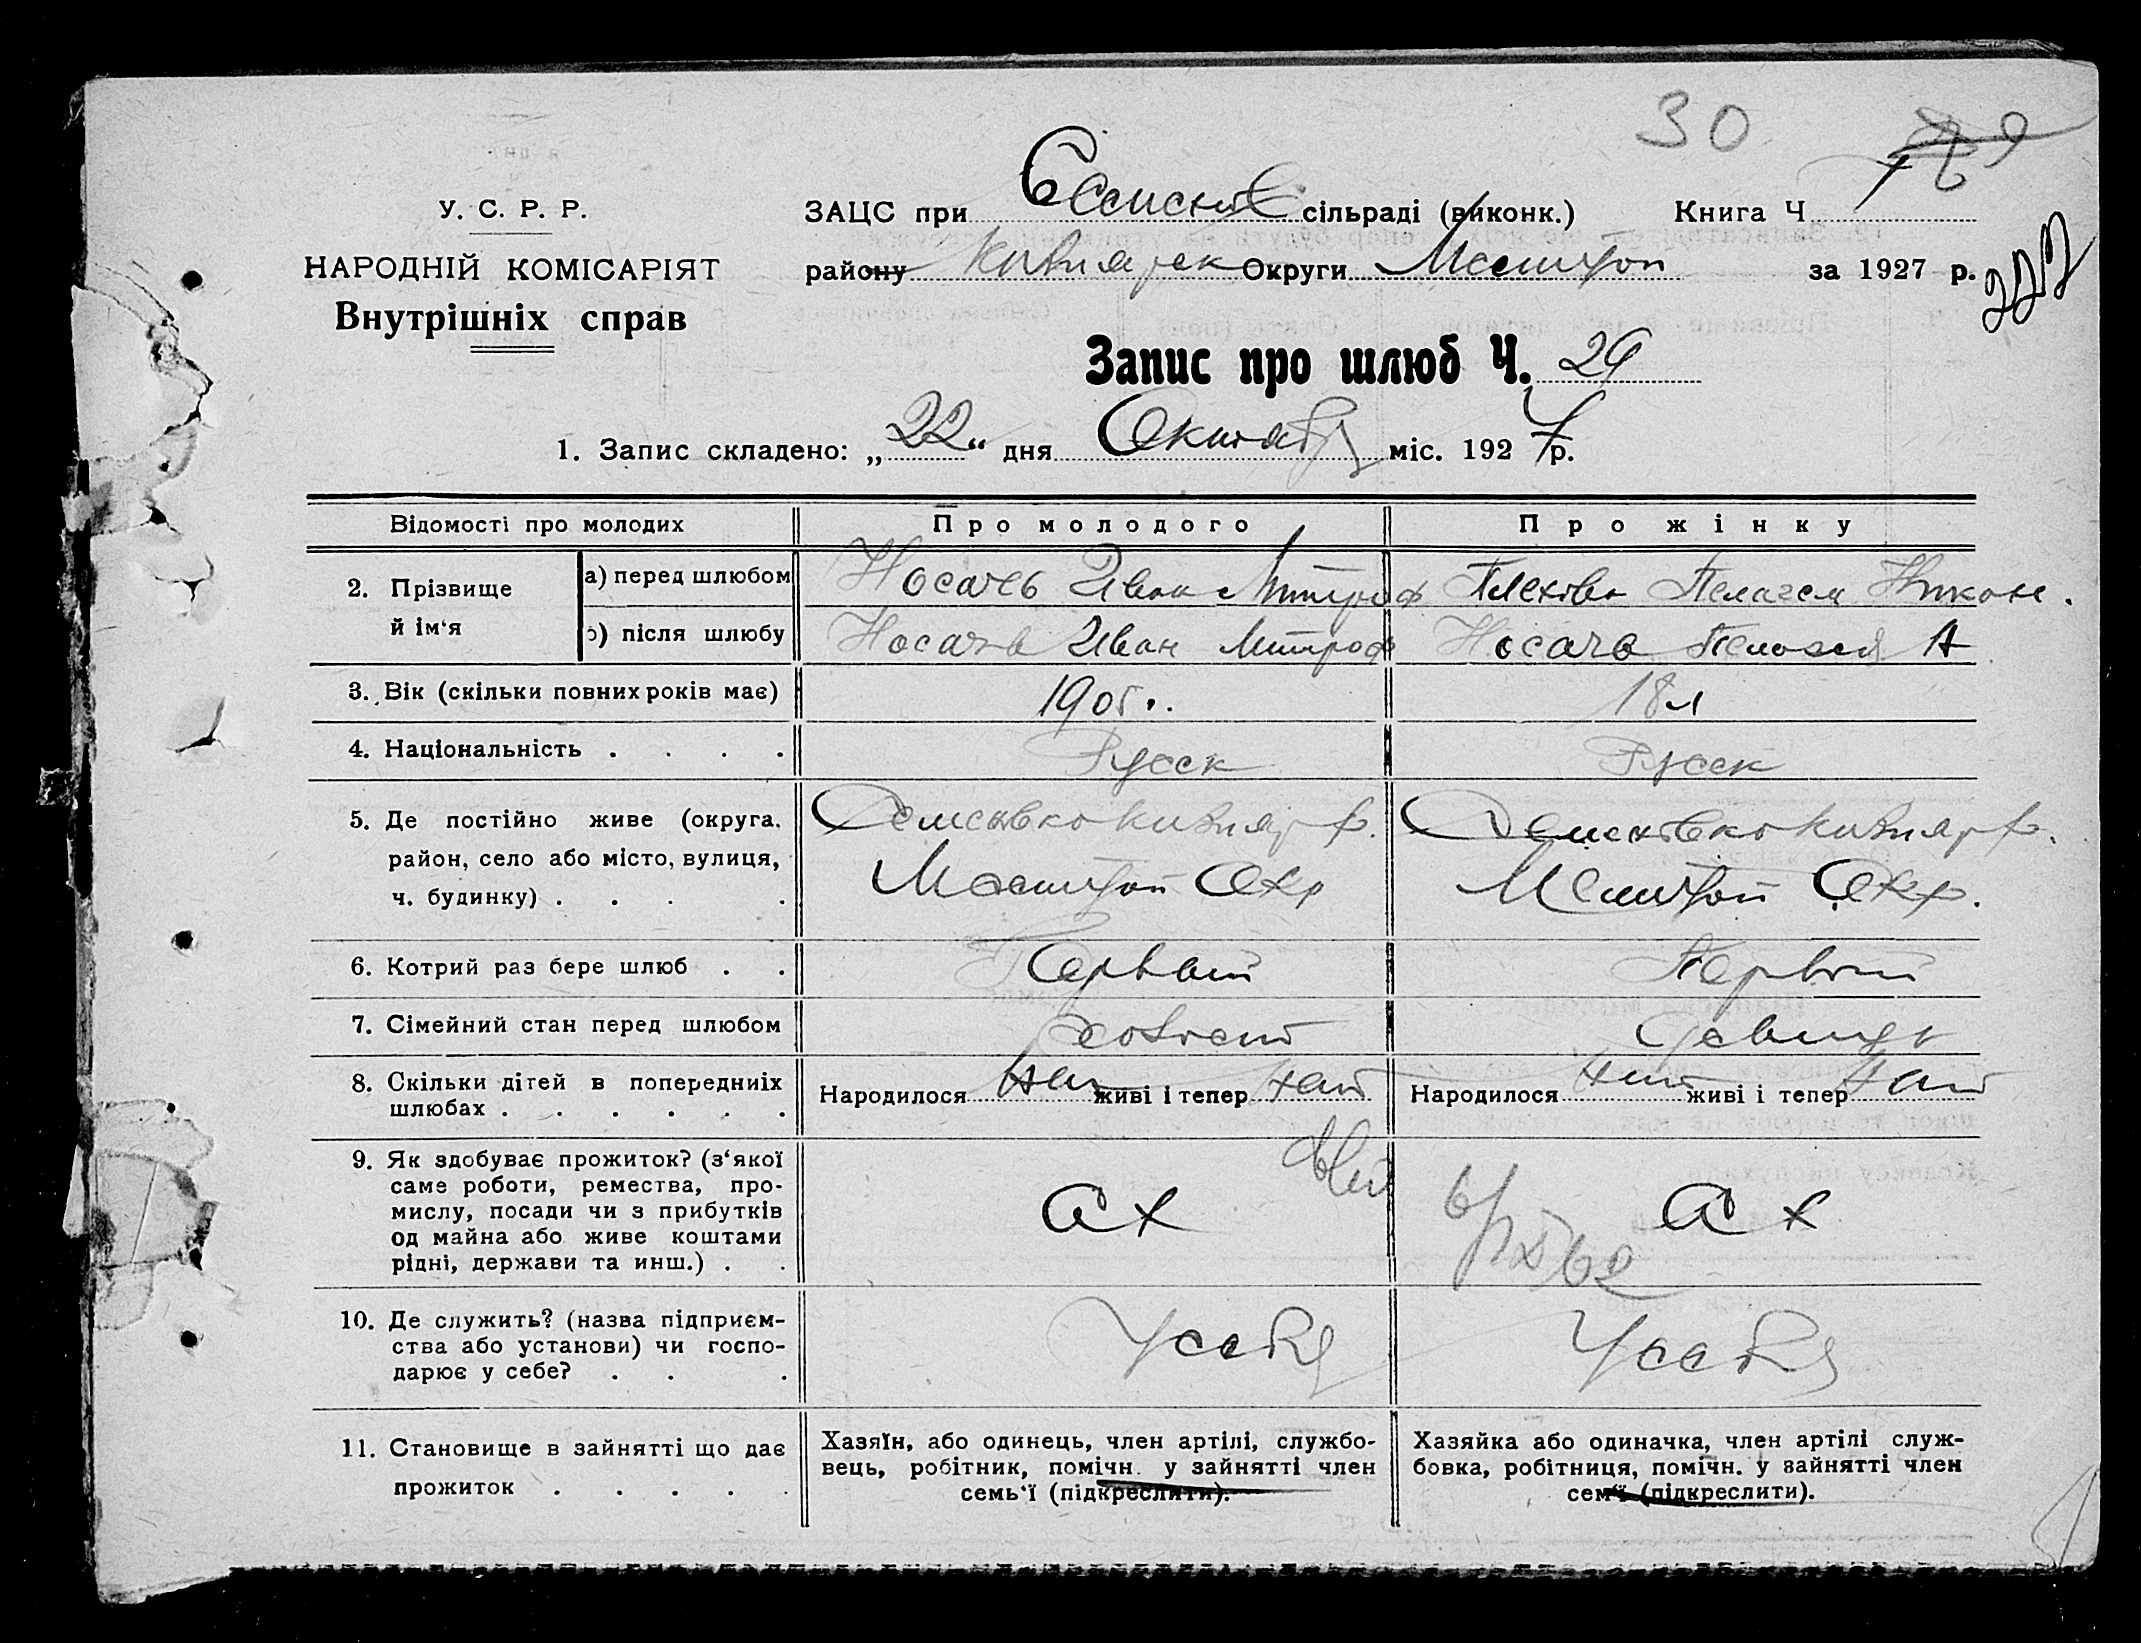 30
У. С. Р. Р.
НАРОДНІЙ КОМІСАРІЯТ
Внутрішніх справ
ЗАЦС при сільраді (виконк.) Книга Ч
району Округи за 1927 р.
Запис про шлюб Ч. 29
1. Запис складено: „22“ дня Октября міс. 1927 р.
Відомості про молодих Про молодого Про жінку
2. Прізвище й ім‘я
а) перед шлюбом Носачев Иван Митроф
б) після шлюбу Носачев Иван Митроф Носачева Пелагея
3. Вік (скільки повних років має) 18 л
4. Національність . . . . Русск Русск
5. Де постійно живе (округа, район, село або місто, вулиця, ч. будинку) . . . .
Мелитоп Окр Мелитоп Окр.
6. Котрий раз бере шлюб . . Первый Первый
7. Сімейний стан перед шлюбом Холостой Девица
8. Скільки дітей в попередниіх шлюбах . . . . . .
Народилося нет живі і тепер нет Народилося нет живі і тепер нет
9. Як здобуває прожиток? (з‘якої саме роботи, ремества, промислу, посади чи з прибутків од майна або живе коштами рідні, держави та инш.) . .
СХ СХ
10. Де служить? (назва підприємства або установи) чи господарює у себе? . . .
У себя У себя
11. Становище в зайнятті що дає прожиток . . . . .
Хазяїн, або одинець, член артілі, службовець, робітник, помічн. у зайнятті член семь‘ї (підкреслити).
Хазяйка або одиначка, член артілі службовка, робітниця, помічн. у зайнятті член сем‘ї (підкреслити).